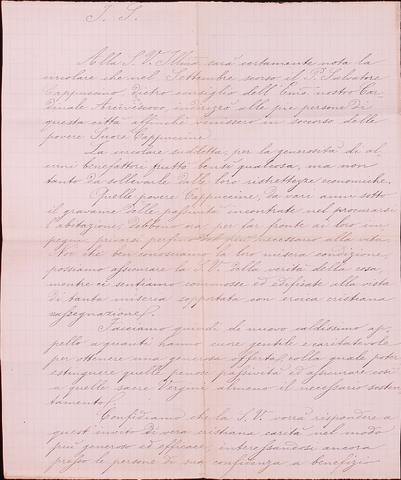 J. S.
Alla S. V. Illma sarà certamente nota la
circolare che nel Settembre scorso il P. Salvatore
Cappuccino, dietro consiglio dell'Emo nostro Car-
dinale Arcivescovo, indirizzò alle pie persone di
questa città affinchè venissero in soccorso delle
povere Suore Cappuccine.
La circolare suddetta, per la generosità di al-
cuni benefattori fruttò bensì qualcosa, ma non
tanto da sollevarle dalle loro ristrettezze economiche.
Quelle povere Cappuccine, da vari anni sotto
il gravame delle passività incontrate nel procurarsi
l'abitazione, debbono ora per far fronte ai loro im-
pegni privarsi perfino del più necessario alla vita.
Noi che ben conosciamo la loro misera condizione,
possiamo assicurare la S. V. della verità della cosa,
mentre ci sentiamo commosse ed edificate alla vista
di tanta miseria sopportata con eroica cristiana
rassegnazione.
Facciamo quindi di nuovo caldissimo ap-
pello a quanti hanno cuore gentile e caritatevole
per ottenere una generosa offerta, colla quale poter
estinguere quelle penose passività ed assicurare così
a quelle sacre Vergini almeno il necessario sosten-
tamento.
Confidiamo che la S. V. vorrà rispondere a
quest'invito di vera cristiana carità nel modo
più generoso ed efficace, interessandosi ancora
presso le persone di sua confidenza a benefizio